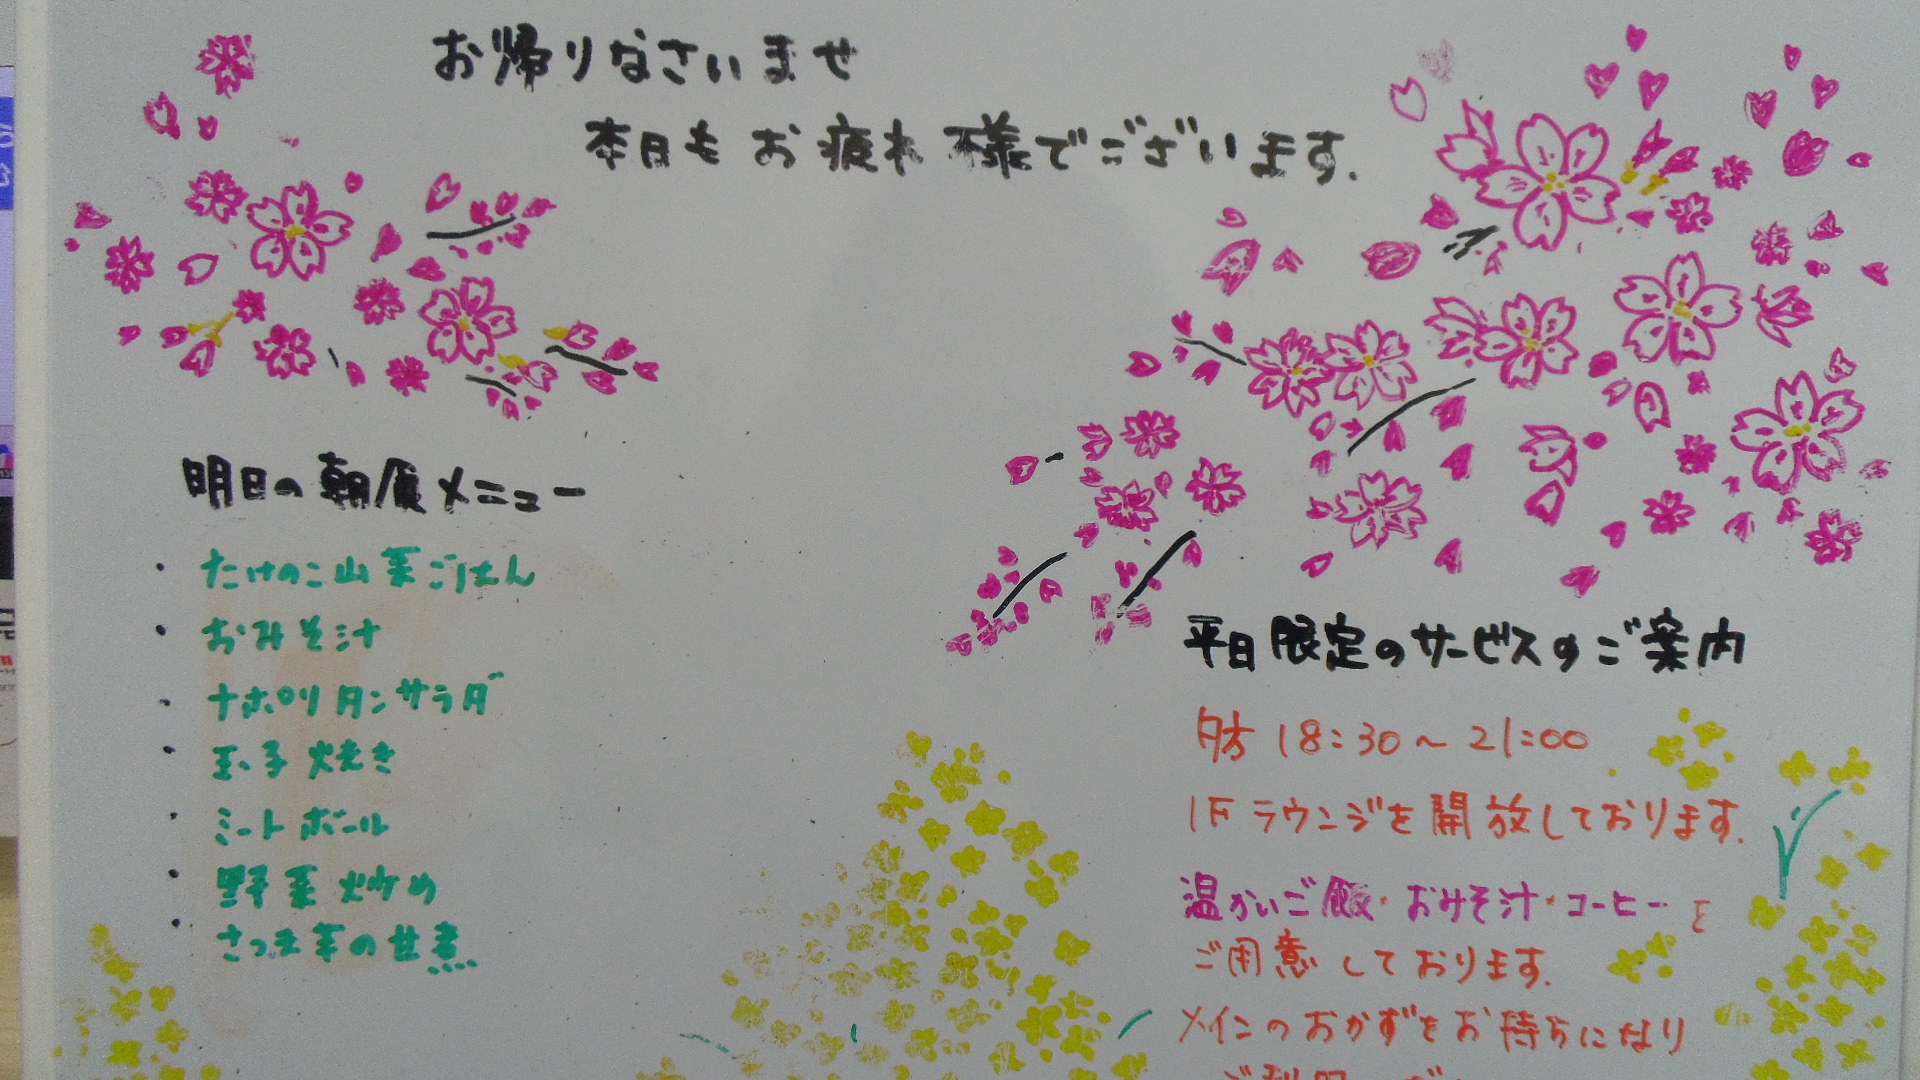 お帰りなさいませ
本日もお疲れ様でございます.
明日の朝食メニュー
・たけのこ山菜ごはん
・おみそ汁
・ナポリタンサラダ
・玉子焼き
・ミートボール
・野菜炒め
・さつま芋の甘煮
平日限定のサービスのご案内
夕方 18:30〜21:00
1Fラウンジを開放しております.
温かいご飯・おみそ汁・コーヒーを
ご用意しております.
メインのおかずをお持ちになり